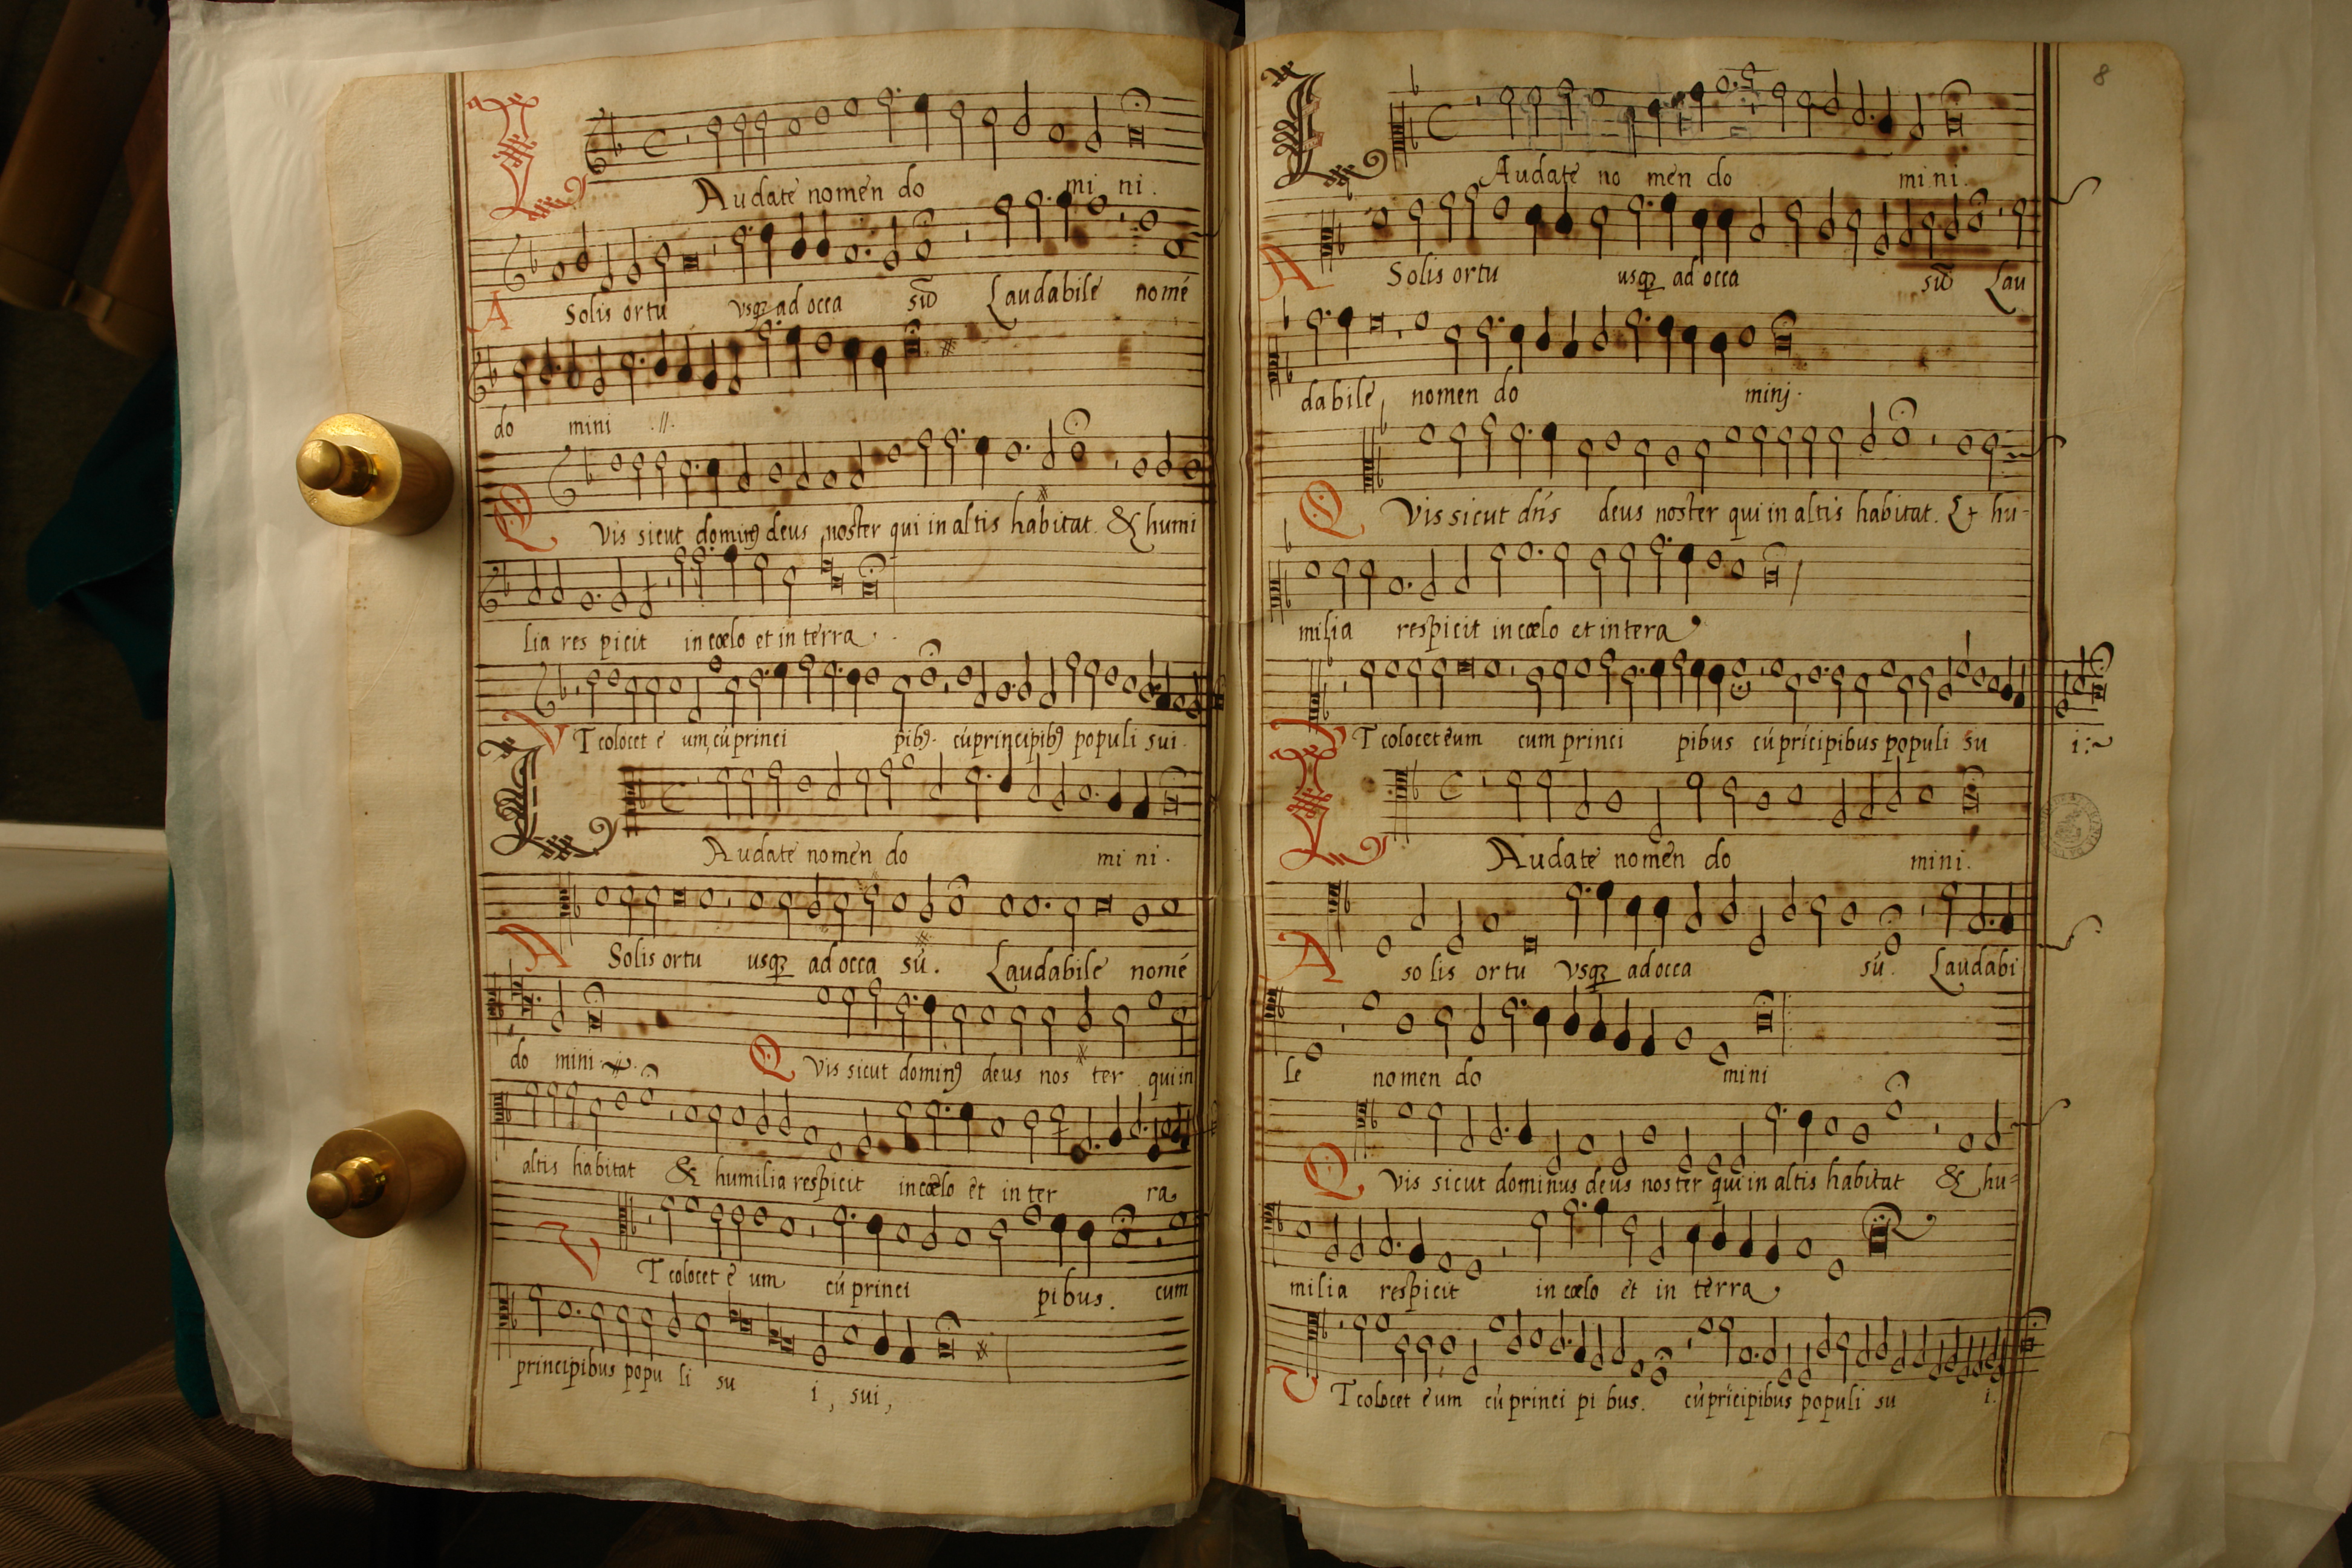 LAudate nomen do mi ni.
A Solis ortu vsqꝫ ad occa sū Laudabile nomé
do mini .//.
QVis sicut dominꝰ deus noster qui in altis habitat. & humi
lia res picit in cœlo et in terra.
VT colocet ē um, cú princi pibꝰ. cú principibꝰ populi sui.
LAudate nomen do mi ni.
A Solis ortu usqꝫ ad occa sú. Laudabile nomé
do mini
QVis sicut dominꝰ deus nos ter qui in
altis habitat & humilia respicit in cœlo et in ter ra
VT colocet ē um cú princi pibus. cum
principibus popu li su i, sui,
8
LAudate no men do mi ni.
A Solis ortu usqꝫ ad occa sū Lau
dabile nomen do minj.
QVis sicut dn̄s deus noster qui in altis habitat. & hu-
milia respicit in cœlo et in tera
VT colocet ēum cum princi pibus cú prīcipibus populi su i:~
LAudate nomen do mini.
A so lis ortu vsqꝫ ad occa sú. Laudabi
le nomen do mini
QVis sicut dominus deus noster qui in altis habitat & hu=
milia respicit in cœlo et in terra,
VT colocet ē um cú princi pi bus. cú prīcipibus populi su i.